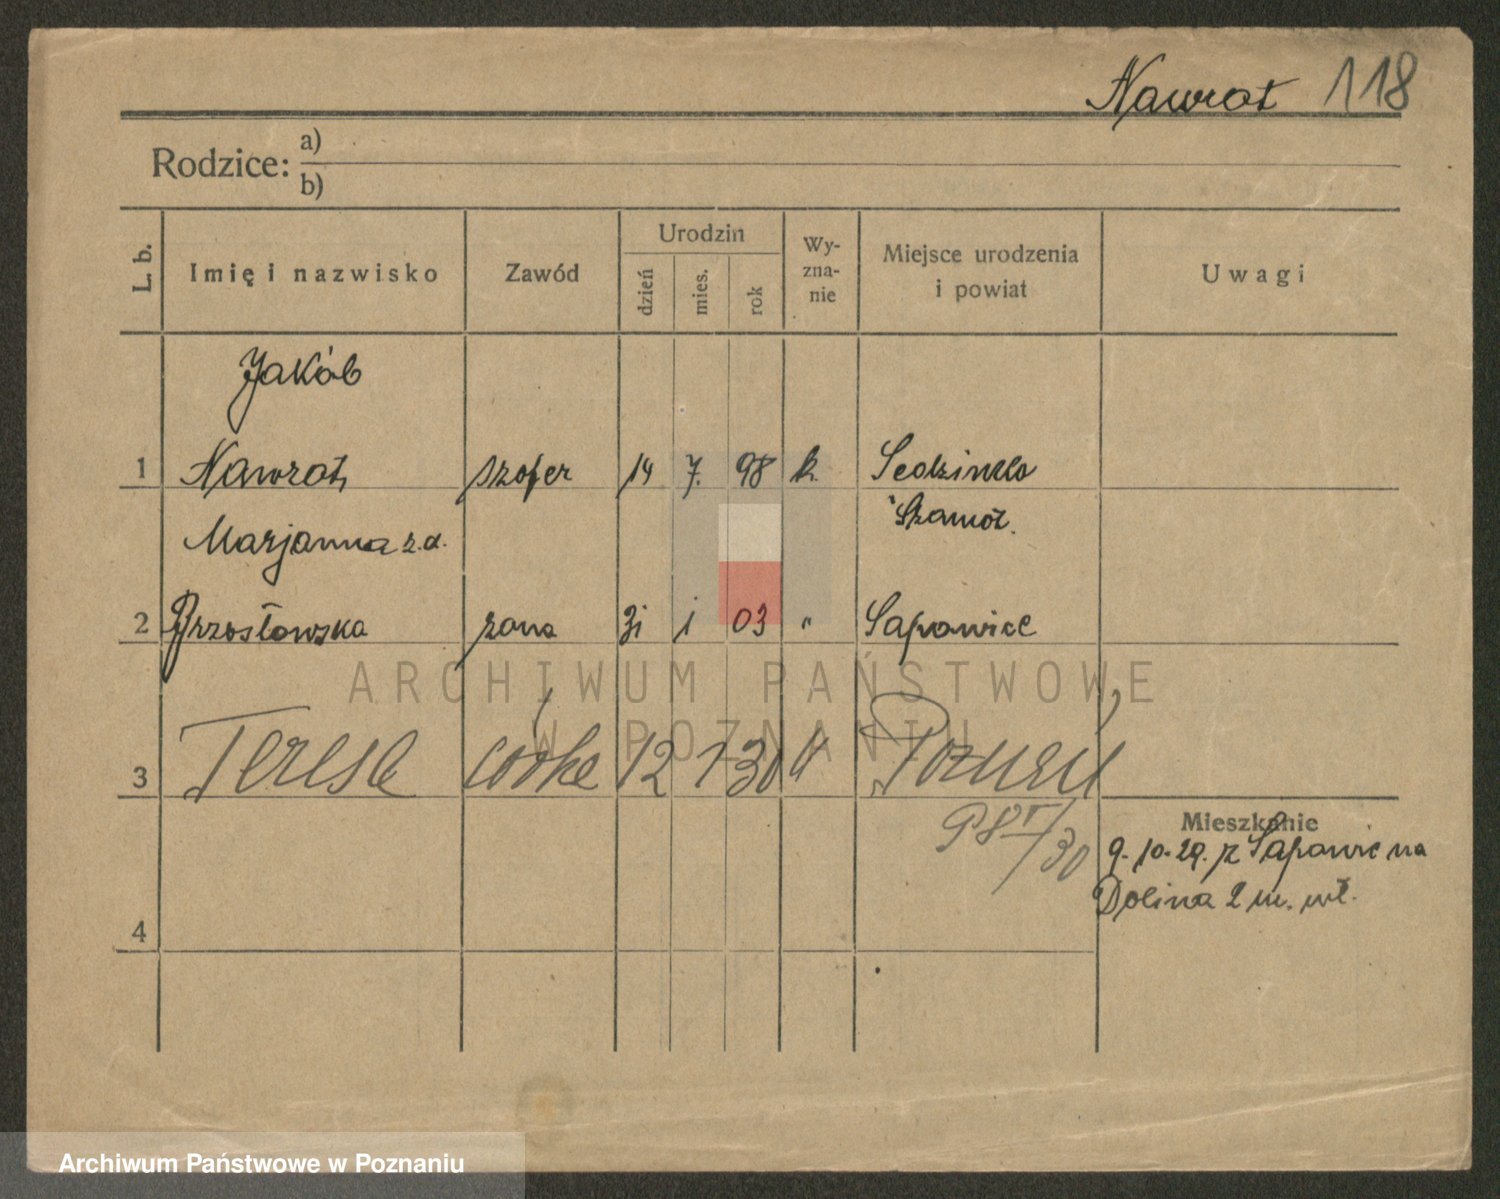 Nawrot 118
Rodzice: a)
b)
L. b. Imię i nazwisko Zawód Urodzin dzień mies. rok Wy-zna-nie Miejsce urodzenia i powiat Uwagi
Jakób
1 Nawrot szofer 14 7. 98 k. Sedzinko
Szamot.
Marjanna z.d.
2 Brzostowska żona 31 1 03 " Sapowice
3 Teresa córka 12 1 30 k Poznań
987/30
Mieszkanie
9.10.29. z Sapowic na
Dolina 2 m. wł.
4
ARCHIWUM PAŃSTWOWE
W POZNANIU
Archiwum Państwowe w Poznaniu